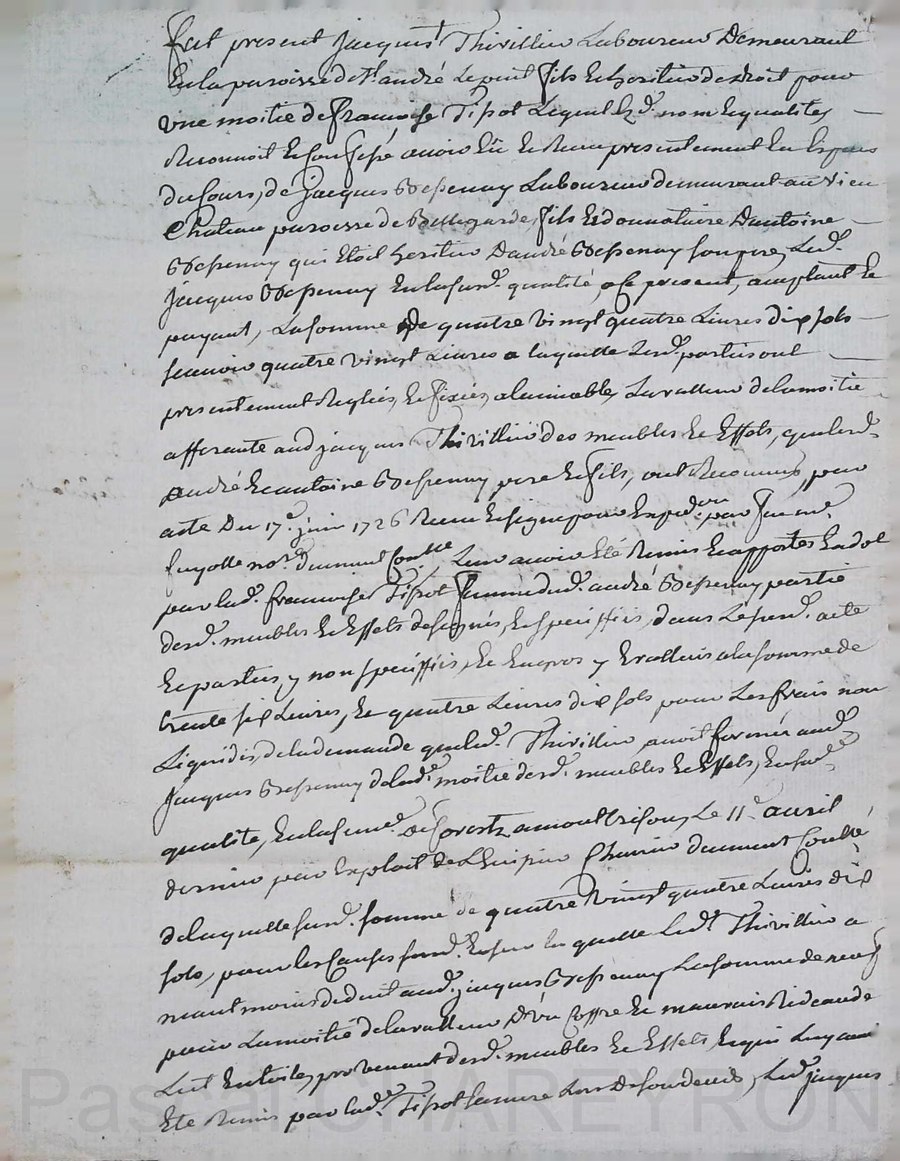 fut present jacques Thivillier Laboureur Demeurant
En la paroisse de St. andré Le puit fils Et heritier de droit pour
une moitié de francoise Tipot Lequel Esd. nom Et qualites
Reconnoit Et confesse avoir Eü Et Receu presentement En Especes
du Cours, de jacques Bessenay Laboureur demeurant au vieu
Chateau paroisse de Bellegarde, fils Et donnataire D'antoine
Bessenay qui Etoit heritier D'andré Bessenay son pere, Led.
jacques Bessenay En lasusd. qualité, a Ce present, acceptant Et
payant, La somme de quatre vingt quatre Livres dix sols
scavoir quatre vingt Livres a laquelle Lesd. parties ont
presentement Reglées, Et fixées, a l'amiable, La valleur de la moitié
afferante aud. jacques Thivillier des meubles Et Effets, que lesd.
andré Et antoine Bessenay pere Et fils, ont Reconnus, par
acte Du 17e. juin 1726 Receu Et signé pour Expedon. par feu me.
fayolle nore. Leur avoir Eté Remis Et apportés En dot
par lad. francoise Tipot femme dud. andré Bessenay partie
desd. meubles Et Effets designés, Et speciffiés, dans Le susd. acte
Et parties y non speciffiés, Et En gros y Evallués a la somme de
trente six Livres, Et quatre Livres dix sols pour Les frais non
Liquidés, de la demande que led. Thivillier avoit formée aud.
jacques Bessenay de lad. moitié desd. meubles Et Effets, En sad.
qualité, En la senee. de forestz a montbrison, Le 11e. avril
dernier par Exploit de L'huissier
de laquelle susd. somme de quatre vingt quatre Livres dix
sols, pour les Causes susd. Et sur la quelle Led. Thivillier a
neant moins deduit aud. jacques Bessenay La somme de neuf
pour La moitié de la valleur d'un Coffre Et mauvais Rideau de
Lit En toile, provenant desd. meubles Et Effets Et qui Luy ont
Eté Remis par lad. Tipot sa mere Lors de son deces, Led. jacques
Pascal CHAREYRON